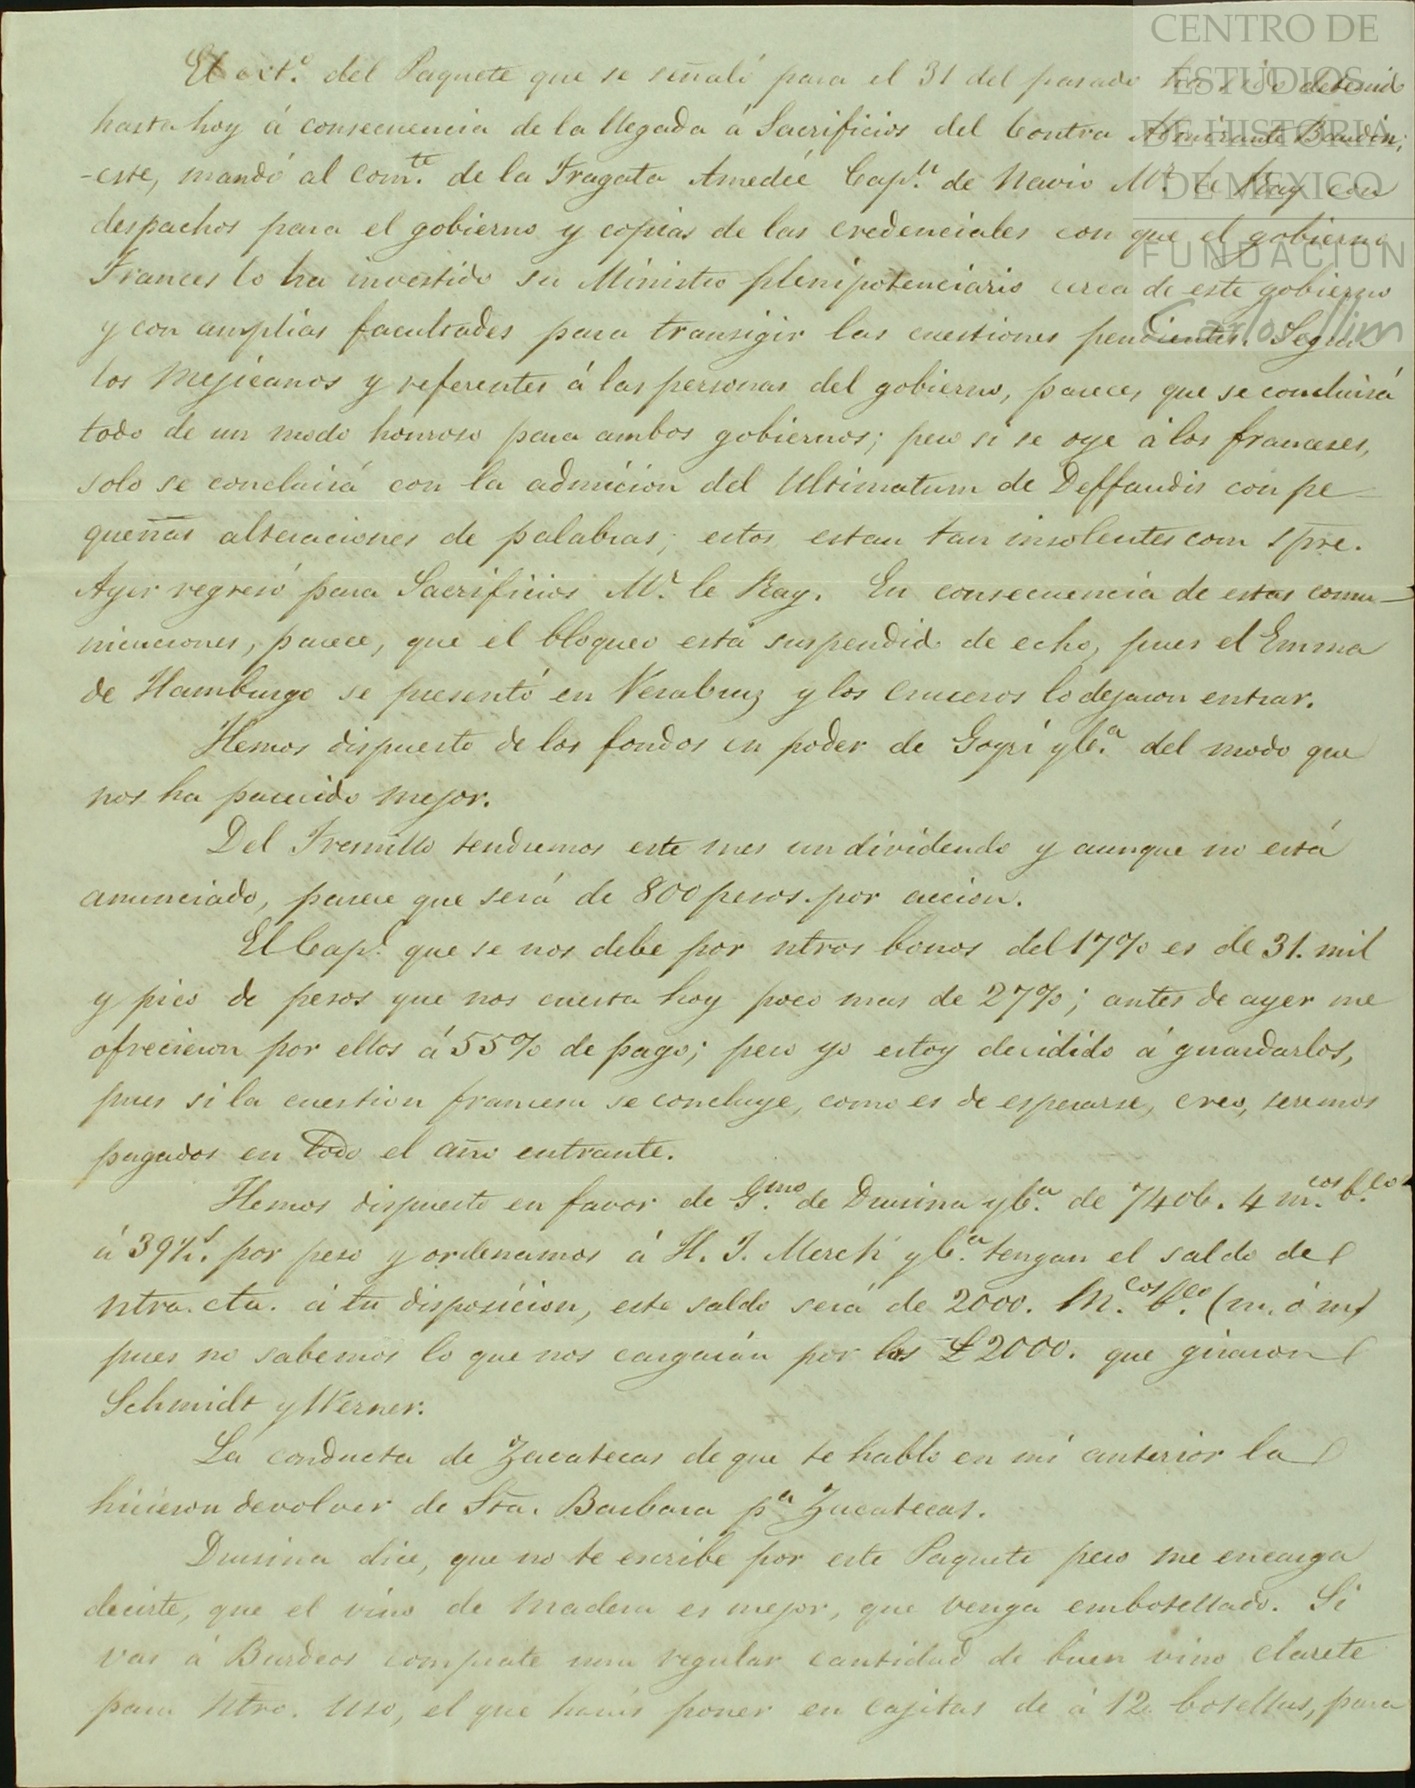 El ext.º del Paquete que se señaló para el 31 del pasado ha sido detenido
hasta hoy á consecuencia de la llegada á Sacrificios del Contra Almirante Baudin;
este, mandó al com.te de la Fragata Amedée Cap.n de Navio Mr. le Ray con
despachos para el gobierno y copias de las credenciales con que el gobierno
Frances lo ha investido su Ministro plenipotenciario cerca de este gobierno
y con amplias facultades para transigir las cuestiones pendientes. Segun
los Mejicanos y referentes á las personas del gobierno, parece, que se concluirá
todo de un modo honroso para ambos gobiernos; pero si se oye á los franceses,
solo se concluirá con la admicion del Ultimatum de Deffaudis con pe=
queñas alteraciones de palabras; estos, estan tan insolentes com spre.
Ayer regresó para Sacrificios Mr. le Ray. En consecuencia de estas comu-
nicaciones, parece, que el bloqueo está suspendido de echo, pues el Emma
de Hamburgo se presentó en VeraCruz y los cruceros lo dejaron entrar.
Hemos dispuesto de los fondos en poder de Goyri y C.a del modo que
nos ha parecido mejor.
Del Fresnillo tendremos este mes un dividendo y aunque no está
anunciado, parece que será de 800 pesos. por accion.
El Cap.l que se nos debe por ntros bonos del 17% es de 31. mil
y pico de pesos que nos cuesta hoy poco mas de 27%; antes de ayer me
ofrecieron por ellos á 55% de pago; pero yo estoy decidido á guardarlos,
pues si la cuestion francesa se concluye, como es de esperarse, creo, seremos
pagados en todo el año entrante.
Hemos dispuesto en favor de G.mo de Drusina y C.a de 7406. 4 m.cos b.co
á 39½. por peso y ordenamos á H. J. Merck y C.a tengan el saldo de
ntra. cta. á tu disposicion, este saldo será de 2000. M.cos b.co (m. ó m)
pues no sabemos lo que nos cargarán por las £2000. que giraron
Schmidt y Werner.
La conducta de Zacatecas de que te hablo en mi anterior la
hicieron devolver de Sta. Barbara pa Zacatecas.
Drusina dice, que no te escribe por este Paquete pero me encarga
decirte, que el vino de Madera es mejor, que venga embotellado. Si
vas á Burdeos comprate una regular cantidad de buen vino clarete
para ntro. uso, el que harás poner en cajitas de á 12 botellas, para
CENTRO DE
ESTUDIOS
DE HISTORIA
DE MEXICO
FUNDACION
Carlos Slim